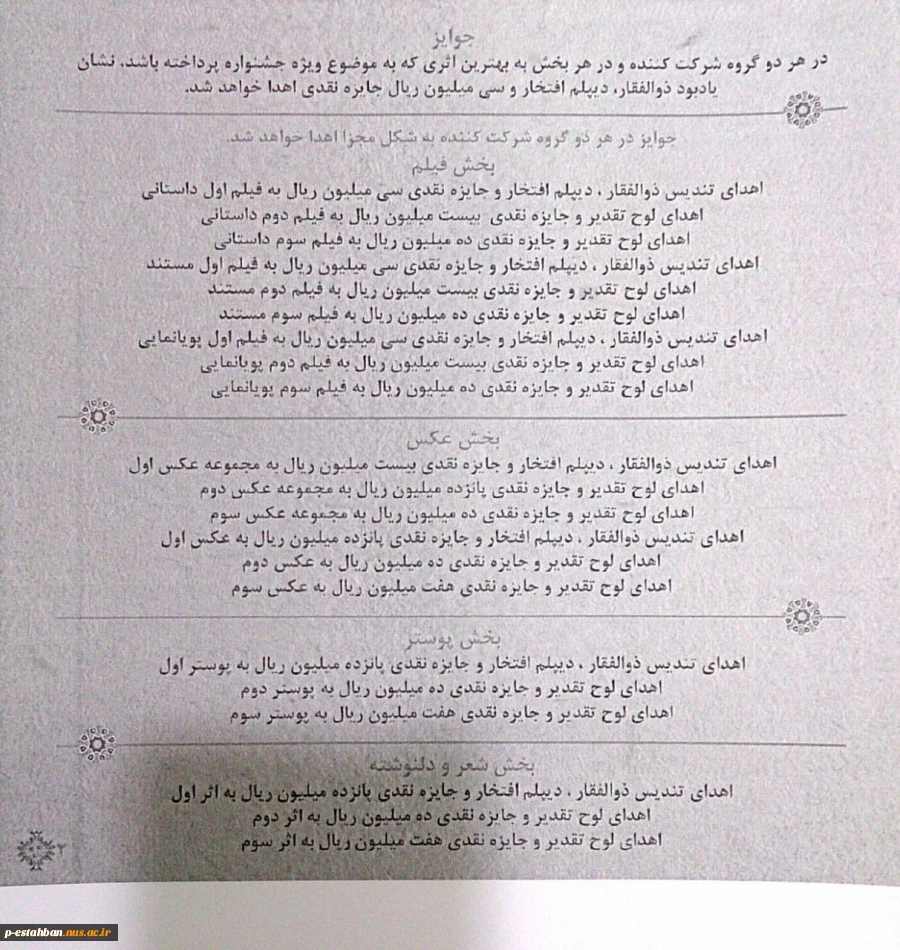 جوایز
در هر دو گروه شرکت کننده و در هر بخش به بهترین اثری که به موضوع ویژه جشنواره پرداخته باشد، نشان
یادبود ذوالفقار، دیپلم افتخار و سی میلیون ریال جایزه نقدی اهدا خواهد شد.
جوایز در هر دو گروه شرکت کننده به شکل مجزا اهدا خواهد شد.
بخش فیلم
اهدای تندیس ذوالفقار ، دیپلم افتخار و جایزه نقدی سی میلیون ریال به فیلم اول داستانی
اهدای لوح تقدیر و جایزه نقدی بیست میلیون ریال به فیلم دوم داستانی
اهدای لوح تقدیر و جایزه نقدی ده میلیون ریال به فیلم سوم داستانی
اهدای تندیس ذوالفقار ، دیپلم افتخار و جایزه نقدی سی میلیون ریال به فیلم اول مستند
اهدای لوح تقدیر و جایزه نقدی بیست میلیون ریال به فیلم دوم مستند
اهدای لوح تقدیر و جایزه نقدی ده میلیون ریال به فیلم سوم مستند
اهدای تندیس ذوالفقار ، دیپلم افتخار و جایزه نقدی سی میلیون ریال به فیلم اول پویانمایی
اهدای لوح تقدیر و جایزه نقدی بیست میلیون ریال به فیلم دوم پویانمایی
اهدای لوح تقدیر و جایزه نقدی ده میلیون ریال به فیلم سوم پویانمایی
بخش عکس
اهدای تندیس ذوالفقار ، دیپلم افتخار و جایزه نقدی بیست میلیون ریال به مجموعه عکس اول
اهدای لوح تقدیر و جایزه نقدی پانزده میلیون ریال به مجموعه عکس دوم
اهدای لوح تقدیر و جایزه نقدی ده میلیون ریال به مجموعه عکس سوم
اهدای تندیس ذوالفقار ، دیپلم افتخار و جایزه نقدی پانزده میلیون ریال به عکس اول
اهدای لوح تقدیر و جایزه نقدی ده میلیون ریال به عکس دوم
اهدای لوح تقدیر و جایزه نقدی هفت میلیون ریال به عکس سوم
بخش پوستر
اهدای تندیس ذوالفقار ، دیپلم افتخار و جایزه نقدی پانزده میلیون ریال به پوستر اول
اهدای لوح تقدیر و جایزه نقدی ده میلیون ریال به پوستر دوم
اهدای لوح تقدیر و جایزه نقدی هفت میلیون ریال به پوستر سوم
بخش شعر و دلنوشته
اهدای تندیس ذوالفقار ، دیپلم افتخار و جایزه نقدی پانزده میلیون ریال به اثر اول
اهدای لوح تقدیر و جایزه نقدی ده میلیون ریال به اثر دوم
اهدای لوح تقدیر و جایزه نقدی هفت میلیون ریال به اثر سوم
۲
p-estahban.nus.ac.ir